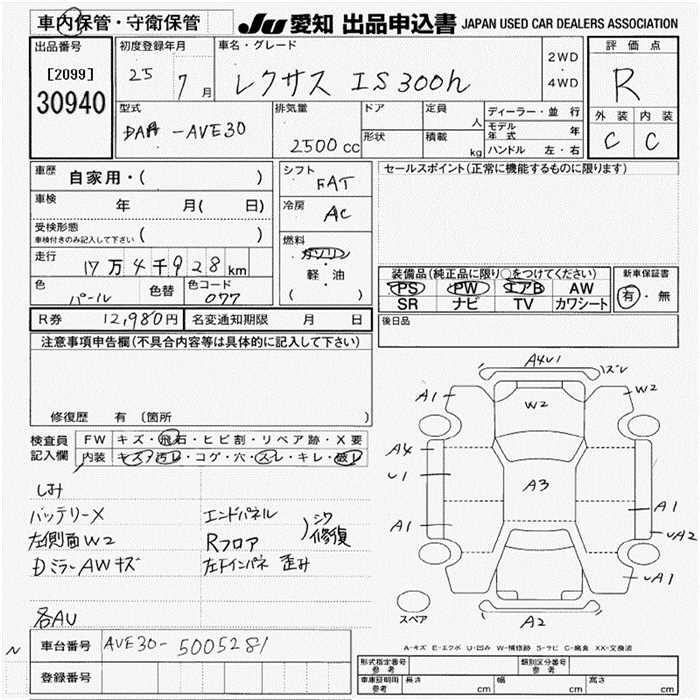 車内保管・守衛保管 JU 愛知 出品申込書 JAPAN USED CAR DEALERS ASSOCIATION
出品番号 初度登録年月 車名・グレード 2WD・4WD 評価点
[2099] 25 7月 レクサス IS300h R
30940
型式 排気量 ドア 定員 人 ディーラー・並行 外装 内装
DAA-AVE30 2500cc 形状 積載 kg モデル年式 年 C C
ハンドル 左・右
車歴 自家用・( ) シフト FAT セールスポイント(正常に機能するものに限ります)
車検 年 月( 日) 冷房 AC
受検形態 ( )
車検付きのみ記入して下さい
燃料 ガソリン・軽・油 ( )
走行 17万4千928km 装備品(純正品に限り○をつけてください) 新車保証書
色 パール 色替 色コード 077 PS PW エアB AW 有・無
SR ナビ TV カワシート
R券 12,980円 名変通知期限 月 日 後日品
注意事項申告欄(不具合内容等は具体的に記入して下さい)
修復歴 有 (箇所 )
検査員 FW キズ・飛石・ヒビ割・リペア跡・X要
記入欄 内装 キズ・汚レ・コゲ・穴・スレ・キレ・破レ
しみ
バッテリーX エンドパネル
左側面W2 Rフロア シワ修復
DミラーAWキズ 左Fインパネ 歪み
各AU
A4U1 ズレ
A1 W2 W2
A4 U1 A3
A1 A1 UA2
UA1
スペア A2
A-キズ E-エクボ U-凹み W-補修跡 S-サビ C-腐食 XX-交換済
N 車台番号 AVE30-5005281
登録番号
形式指定番号 参考 類別区分番号 参考
車庫証明用 参考 長さ cm 幅 cm 高さ cm